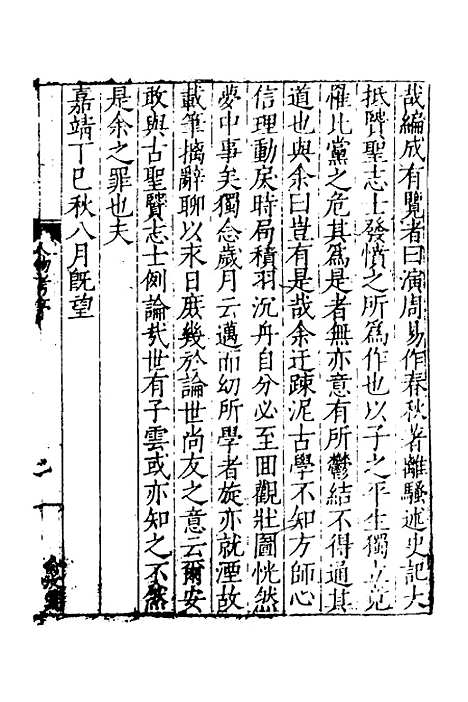 哉編成有覽者曰演周易作春秋著離騷述史記大
抵賢聖志士發憤之所爲作也以子之平生獨立竟
罹比黨之危其爲是者無亦意有所鬱結不得通其
道也與余曰豈有是哉余迂踈泥古學不知方師心
信理動戾時局積羽沉舟自分必至回觀壯圖恍然
夢中事矣獨念歲月云邁而幼所學者旋亦就湮故
載筆摛辭聊以求日庶幾於論世尚友之意云爾安
敢與古聖賢志士例論哉世有子雲或亦知之不然
是余之罪也夫
嘉靖丁巳秋八月旣望
人物考序
二